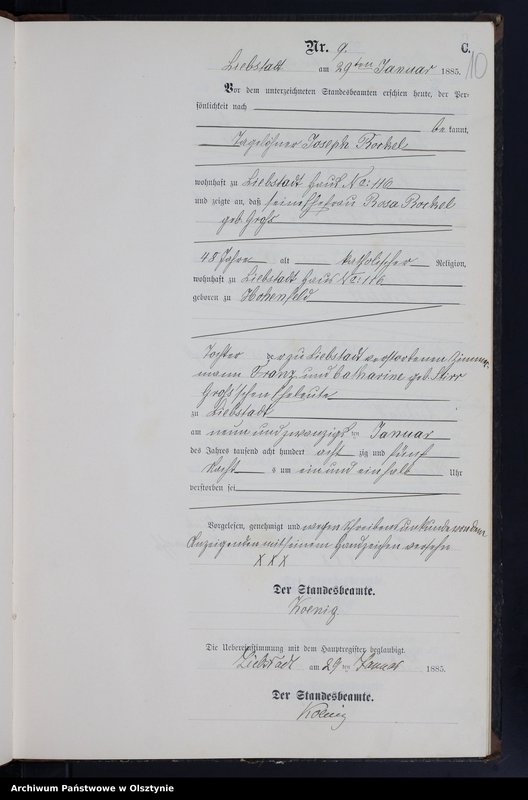 Nr. 9.
C.
10
Liebstadt am 29ten Januar 1885.
Vor dem unterzeichneten Standesbeamten erschien heute, der Per-
sönlichkeit nach
be kannt,
Tagelöhner Joseph Bockel
wohnhaft zu Liebstadt Haus No: 116
und zeigte an, daß seine Ehefrau Rosa Bockel
geb. Groß
48 Jahre alt katholischer Religion,
wohnhaft zu Liebstadt Haus No: 116
geboren zu Hohenfeld
Tochter der zu Liebstadt verstorbenen Zimmer-
mann Franz und Catharine geb.
Groß'schen Eheleute
zu Liebstadt
am neun und zwanzigsten Januar
des Jahres tausend acht hundert acht zig und fünf
Nachts um ein und einhalb Uhr
verstorben sei
Vorgelesen, genehmigt und wegen Schreibensunkunde von dem
Anzeigenden mit seinem Handzeichen versehn
XXX
Der Standesbeamte.
Koenig
Die Uebereinstimmung mit dem Hauptregister beglaubigt.
Liebstadt am 29 ten Januar 1885.
Der Standesbeamte.
Koenig
Archiwum Państwowe w Olsztynie